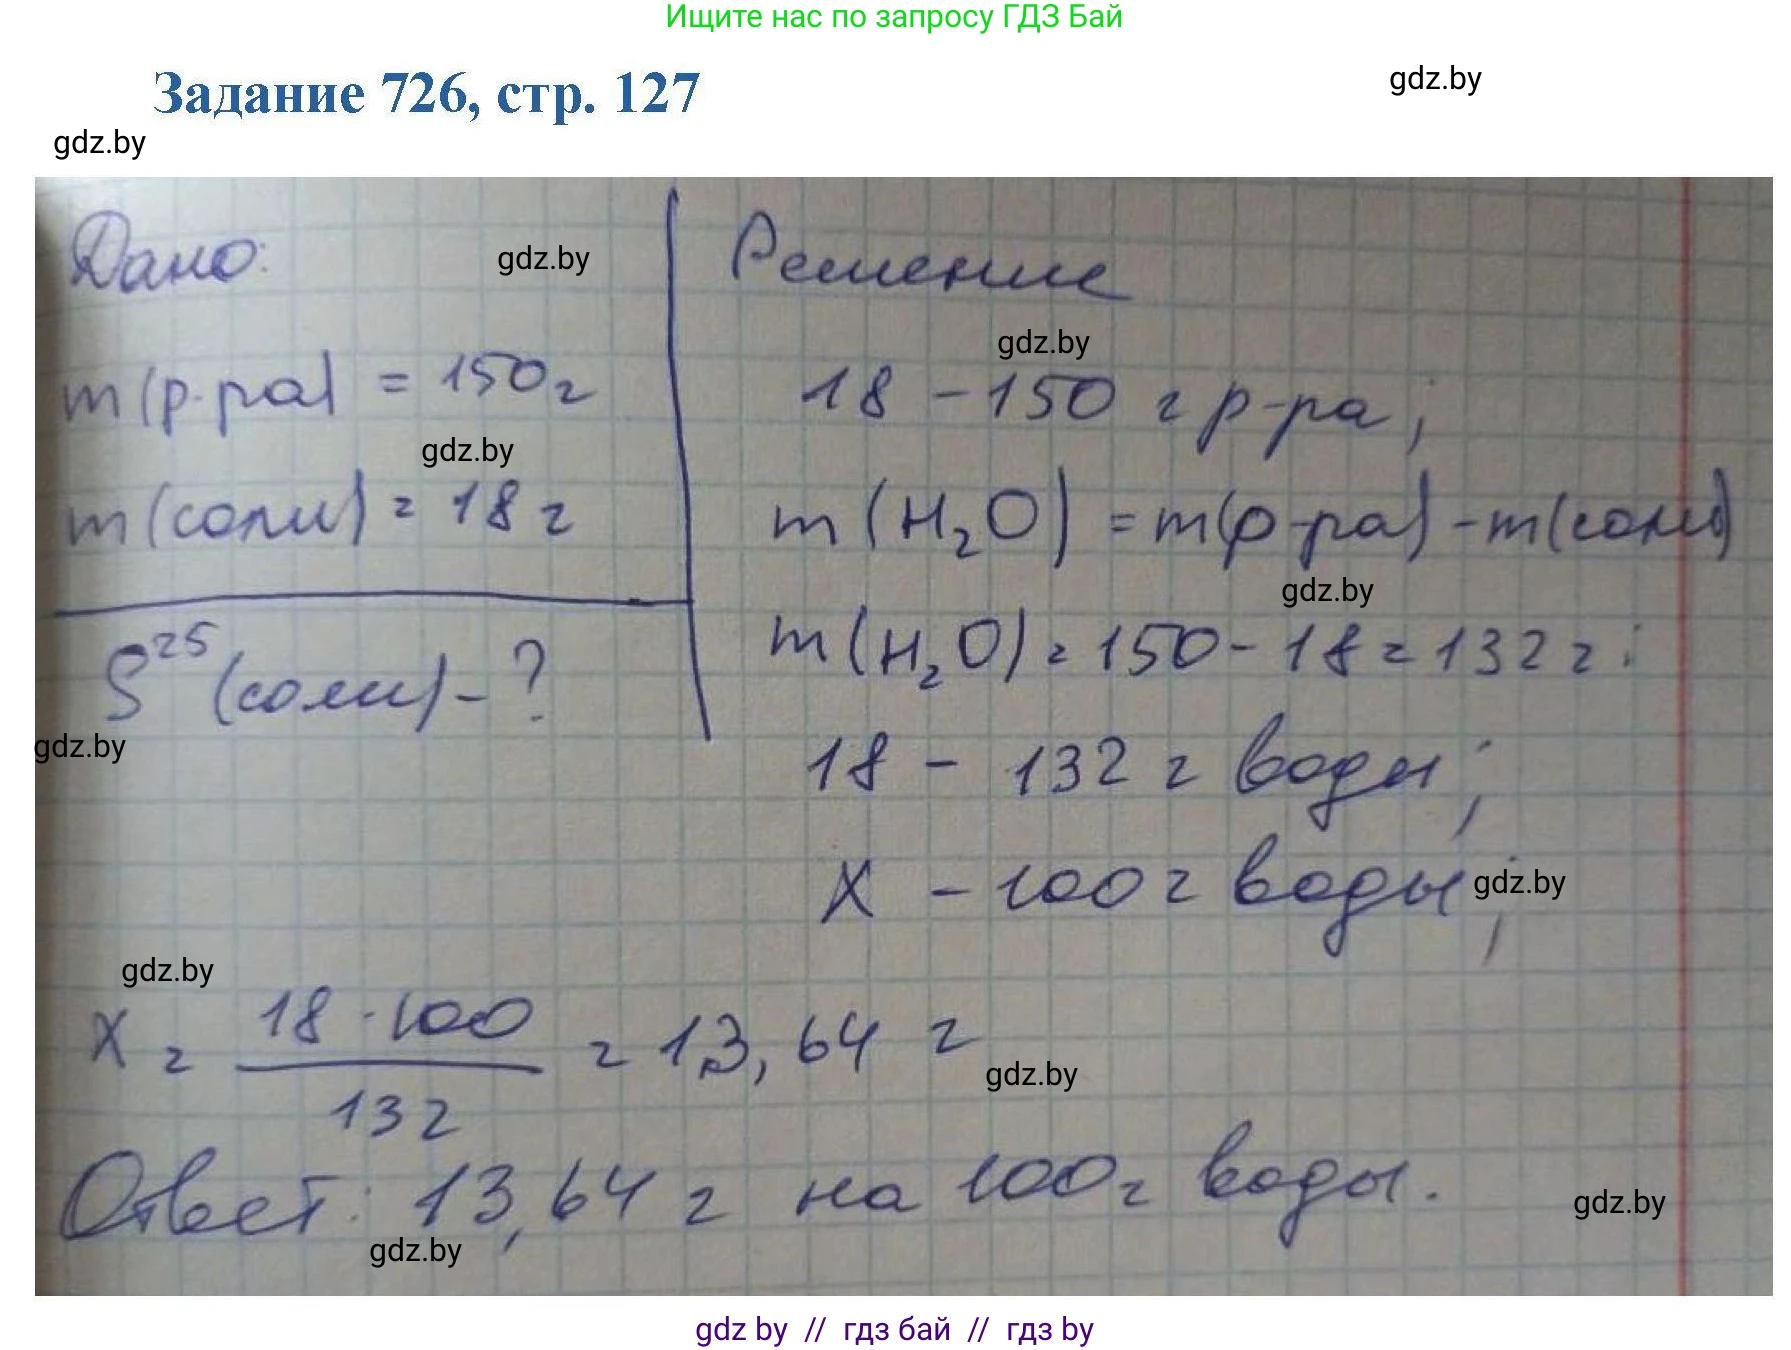 Ищите нас по запросу ГДЗ Бай
Задание 726, стр. 127
gdz.by
gdz.by
Дано:
gdz.by
m(р-ра) = 150 г
gdz.by
m(соли) = 18 г
S²⁵(соли) - ?
gdz.by
Решение
gdz.by
18 - 150 г р-ра;
m(H₂O) = m(р-ра) - m(соли)
gdz.by
m(H₂O) = 150 - 18 = 132 г;
18 - 132 г воды;
X - 100 г воды;
gdz.by
gdz.by
X = 18 · 100 / 132 = 13,64 г
gdz.by
Ответ: 13,64 г на 100 г воды.
gdz.by
gdz.by
gdz by // гдз бай // гдз by